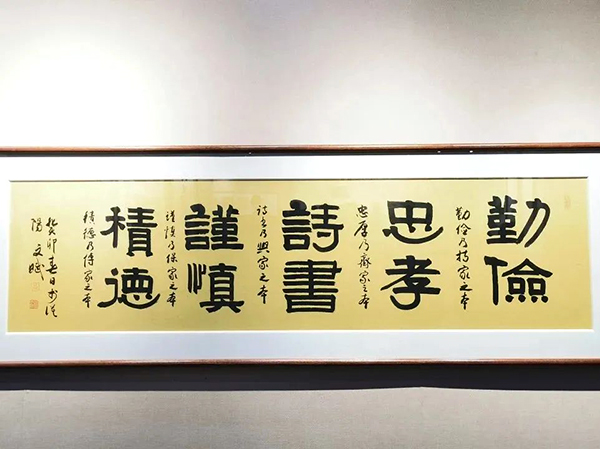 勤儉
勤儉乃持家之本
忠孝
忠厚乃齋家之本
詩書
詩書乃興家之本
謹慎
謹慎乃保家之本
積德
積德乃傳家之本
癸卯春日於漢
陽文